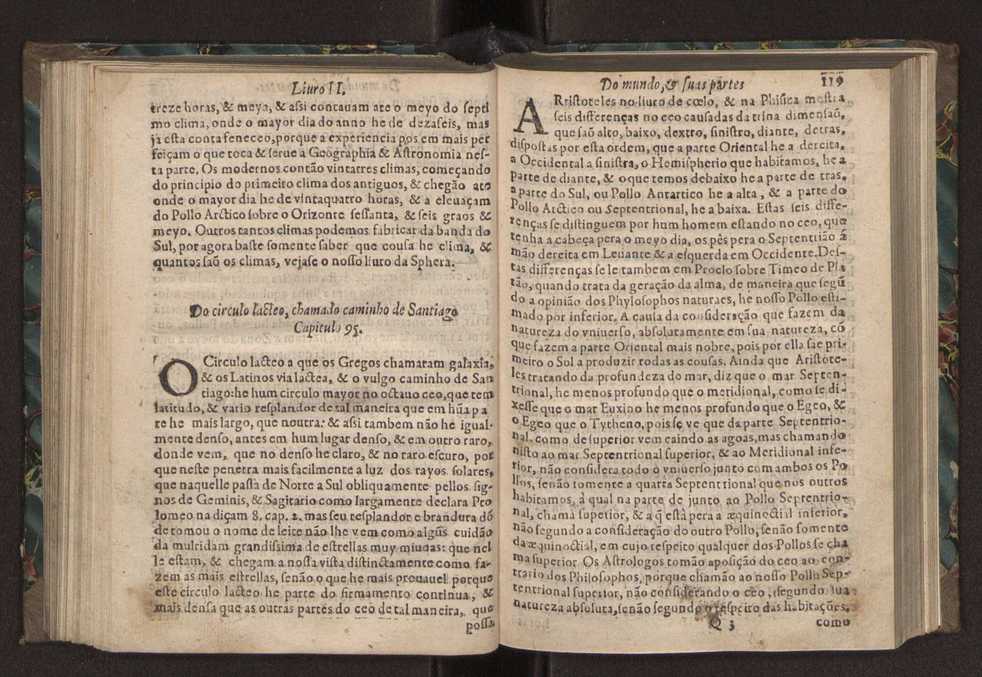 Liuro II.
treze horas, & meya, & assi contauam ate o meyo do septi
mo clima, onde o mayor dia do anno he de dezaseis, mas
ja esta conta feneceo, porque a experiencia pos em mais per
feiçam o que toca & serue a Geographia & Astronomia nes-
ta parte. Os modernos contão vintatres climas, começando
do principio do primeito clima dos antiguos, & chegão ate
onde o mayor dia he de vintaquatro horas, & a eleuaçam
do Pollo Arctico sobre o Orizonte sessanta, & seis graos &
meyo. Outros tantos climas podemos fabricar da banda do
Sul, por agora baste somente saber que cousa he clima, &
quantos saõ os climas, vejase o nosso liuro da Sphera.
Do circulo lacteo, chamado caminho de Santiago
Capitulo 95.
O Circulo lacteo a que os Gregos chamaram galaxia,
& os Latinos via lactea, & o vulgo caminho de San
tiago: he hum circulo mayor no octauo ceo, que tem
latitudo, & vario resplandor de tal maneira que em hũa pa
te he mais largo, que noutra: & assi tambem não he igual-
mente denso, antes em hum lugar denso, & em outro raro,
donde vem, que no denso he claro, & no raro escuro, por
que neste penetra mais facilmente a luz dos rayos solares,
que naquelle passa de Norte a Sul obliquamente pellos sig-
nos de Geminis, & Sagitario como largamente declara Pto
lomeo na diçam 8. cap. 2. mas seu resplandor e brandura dõ
de tomou o nome de leite não lhe vem como algũs cuidão
da multidam grandissima de estrellas muy miudas: que nel
le estam, & chegam a nossa vista distinctamente como fa-
zem as mais estrellas, senão o que he mais prouauel porque
este circulo lacteo he parte do firmamento continua, &
mais densa que as outras partes do ceo de tal maneira, que
possa
Do mundo, & suas partes
119
ARistoteles no liuro de cœlo, & na Phisica mostra
seis differenças no ceo causadas da trina dimensaõ,
que saõ alto, baixo, dextro, sinistro, diante, detras,
dispostas por esta ordem, que a parte Oriental he a dereita,
a Occidental a sinistra, o Hemispherio que habitamos, he a
parte de diante, & o que temos debaixo he a parte de tras,
a parte do Sul, ou Pollo Antartico he a alta, & a parte do
Pollo Arctico ou Septentrional, he a baixa. Estas seis diffe-
renças se distinguem por hum homem estando no ceo, que
tenha a cabeça pera o meyo dia, os pès pera o Septentrião a
mão dereita em Leuante & a esquerda em Occidente. Des-
tas differenças se le tambem em Proclo sobre Timeo de Pla
tão, quando trata da geração da alma, de maneira que segũ
do a opinião dos Phylosophos naturaes, he nosso Pollo esti-
mado por inferior. A causa da consideração que fazem da
natureza do vniuerso, absolutamente em sua natureza, cõ
que fazem a parte Oriental mais nobre, pois por ella sae pri-
meiro o Sol a produzir todas as cousas. Ainda que Aristote-
les tratando da profundeza do mar, diz que o mar Septen-
trional, he menos profundo que o meridional, como se di-
xesse que o mar Euxino he menos profundo que o Egeo, &
o Egeo que o Tytheno, pois se ve que da parte Septentrio-
nal, como de superior vem caindo as agoas, mas chamando
nisto ao mar Septentrional superior, & ao Meridional infe-
rior, não considera todo o vniuerso junto com ambos os Po
llos, senão somente a quarta Septentrional que nos outros
habitamos, à qual na parte de junto ao Pollo Septentrio-
nal, chama superior, & a q̃ està pera a æquinoctial inferior,
não segundo a consideração do outro Pollo, senão somente
da æquinoctial, em cujo respeito qualquer dos Pollos se cha
ma superior. Os Astrologos tomão aposição do ceo ao con-
trario dos Philosophos, porque chamão ao nosso Pollo Sep-
tentrional superior, não considerando o ceo, segundo sua
natureza absoluta, senão segundo o respeito das habitações,
Q 3
como